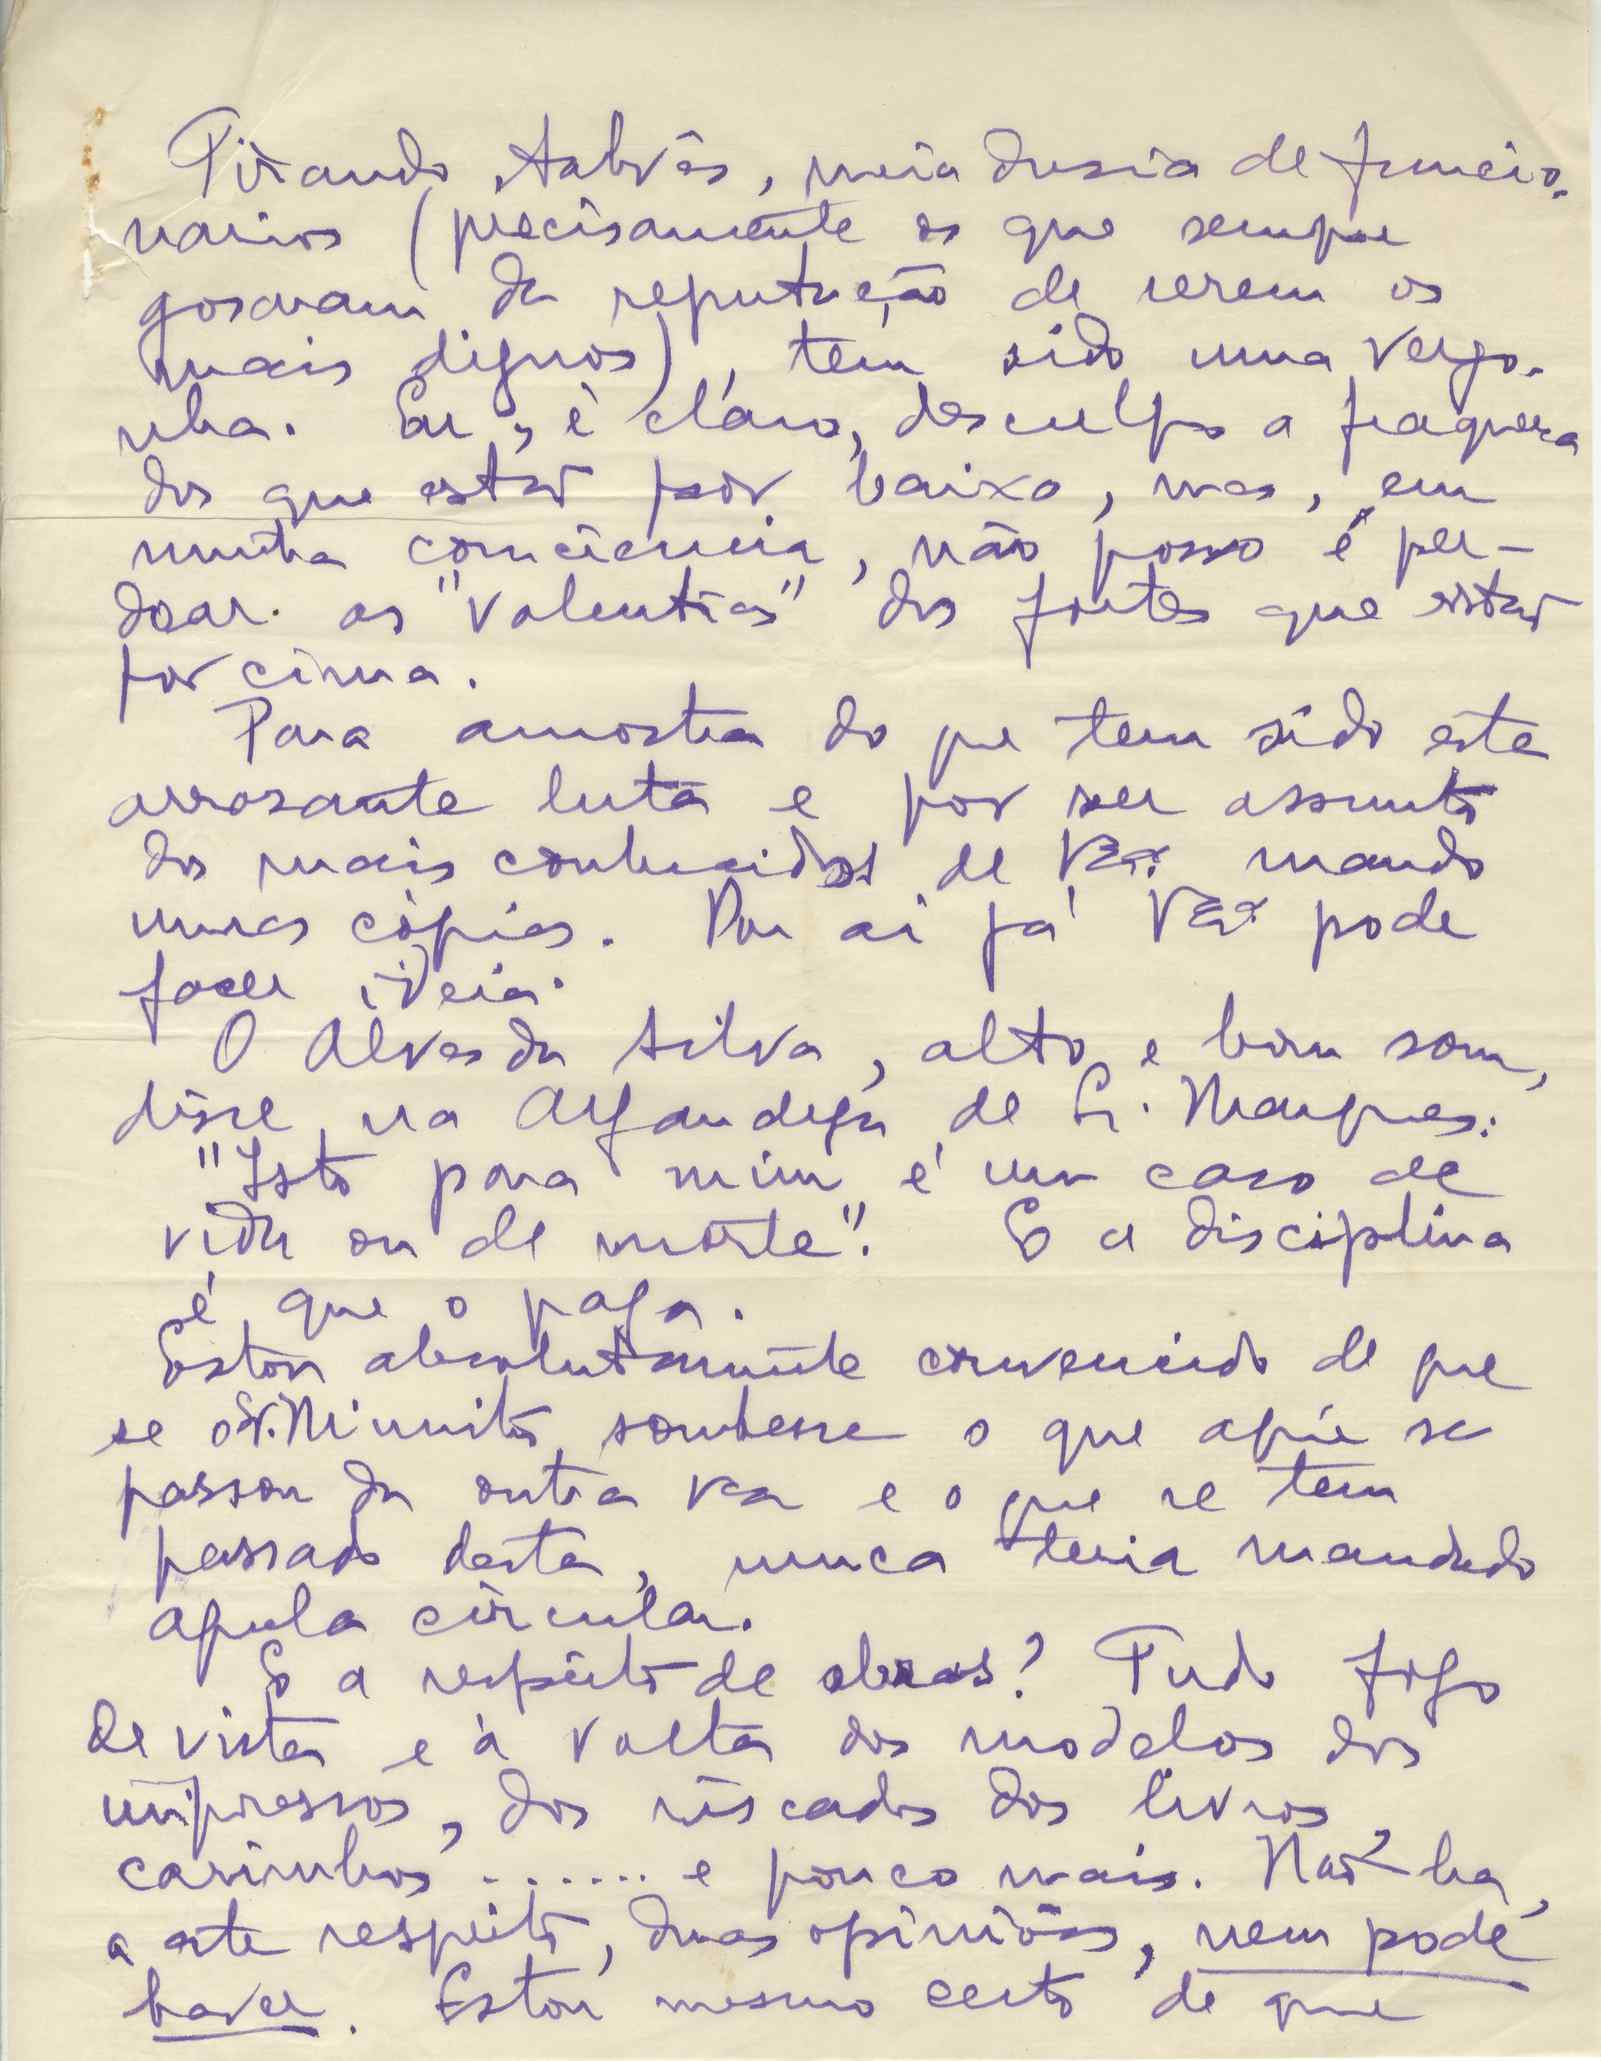 Tirando, talvês, meia dusia de funcio-
narios (precisamente os que sempre
gosavam da reputação de serem os
mais dignos), tem sido uma vergo-
nha. Eu, é claro, desculpo a fraquesa
dos que estão por baixo, mas, em
minha consciencia, não posso é per-
doar as "valentias" dos fortes que estão
por cima.
Para amostra do que tem sido esta
arrasante luta e por ser assunto
dos mais conhecidos de V. Exª. mando
umas cópias. Por ai já V. Exª. pode
faser ideia.
O Alves da Silva, alto e bom som,
disse na Alfandega de L. Marques:
"Isto para mim é um caso de
vida ou de morte". E a disciplina
é que o paga.
Estou absolutamente convencido de que
se o Sr. Ministro soubesse o que aqui se
passou da outra vez e o que se tem
passado desta, nunca teria mandado
aquela circular.
E a respeito de obras? Tudo fogo
de vista e à volta dos modelos dos
impressos, dos riscados dos livros,
carimbos ....... e pouco mais. Não ha,
a este respeito, duas opiniões, nem pode
haver. Estou mesmo certo de que